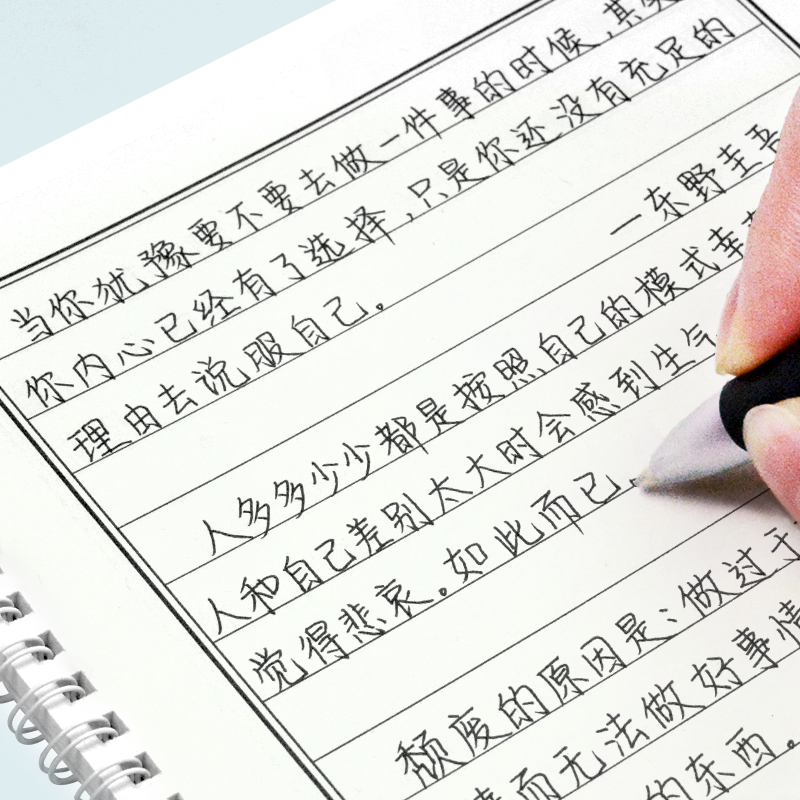 当你犹豫要不要去做一件事的时候,其实
你内心已经有了选择,只是你还没有充足的
理由去说服自己。
一东野圭吾
人多多少少都是按照自己的模式幸
人和自己差别太大时会感到生气
觉得悲哀。如此而已.
颓废的原因是:做过于
而无法做好事情
的东西。